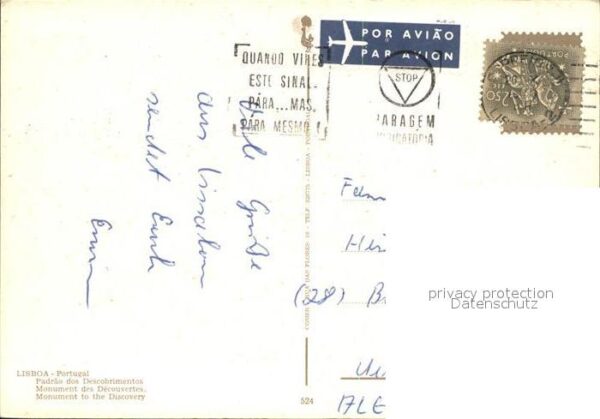 POR AVIÃO
PAR AVION
QUANDO VIRES
ESTE SINAL
PÁRA...MAS,
PÁRA MESMO!
STOP
PARAGEM
OBRIGATÓRIA
2$50
Viele Grüße
aus Lissabon
sendet Euch
Erwin
Fam
(28) B
LISBOA - Portugal
Padrão dos Descobrimentos
Monument des Découvertes.
Monument to the Discovery
524
privacy protection
Datenschutz